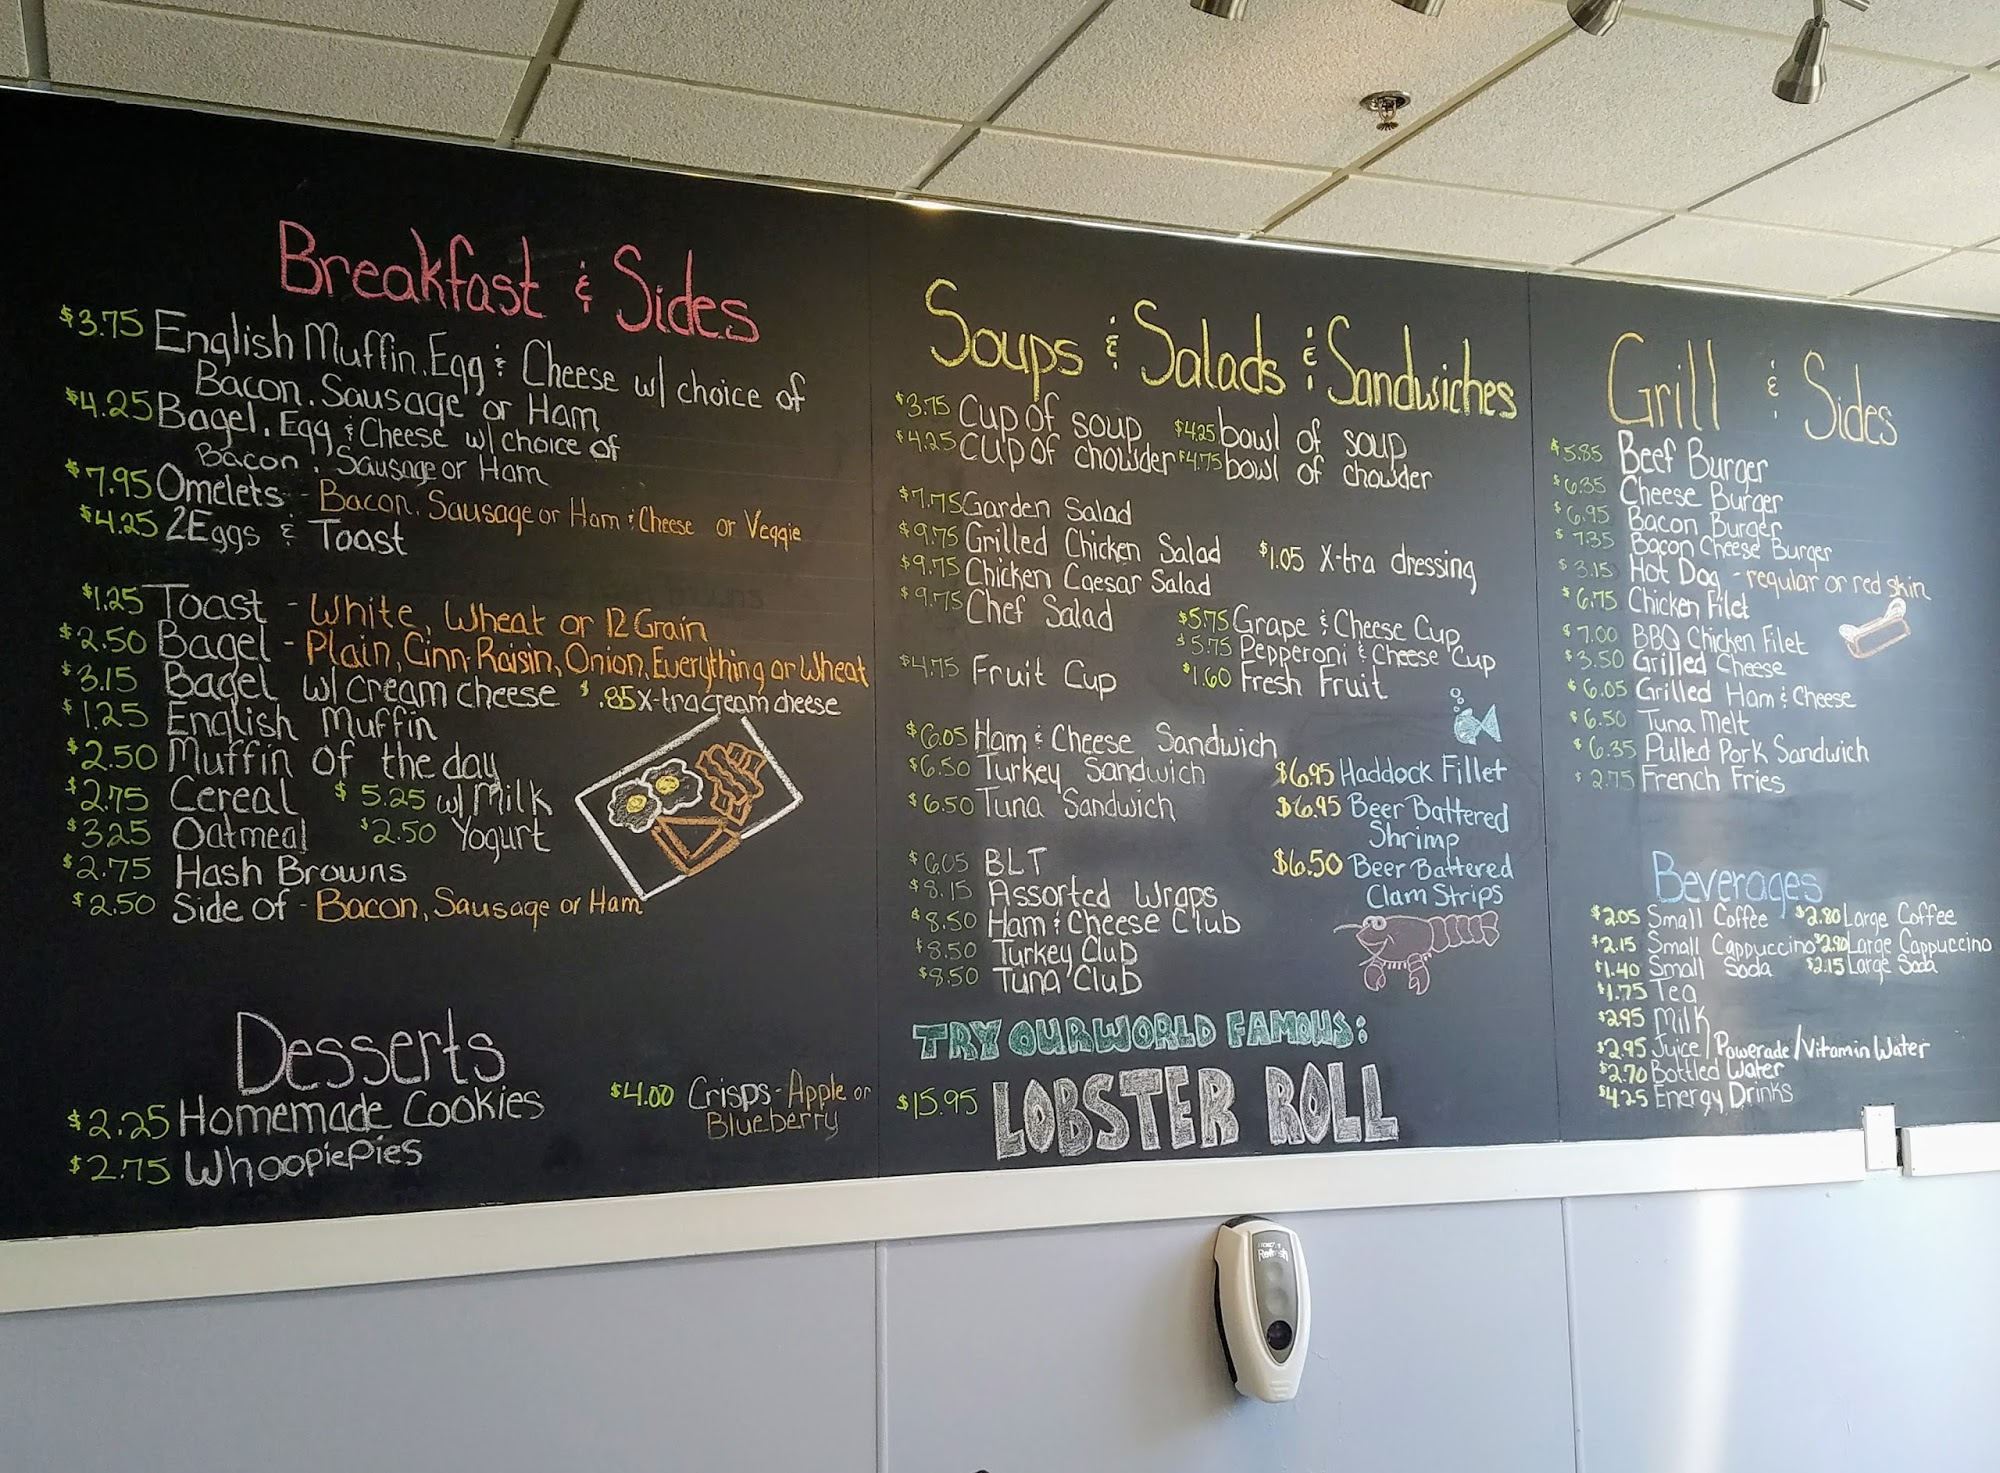 Breakfast & Sides
$3.75 English Muffin, Egg & Cheese w/ choice of
Bacon, Sausage or Ham
$4.25 Bagel, Egg & Cheese w/ choice of
Bacon, Sausage or Ham
$7.95 Omelets - Bacon, Sausage or Ham & Cheese or Veggie
$4.25 2 Eggs & Toast
$1.25 Toast - White, Wheat or 12 Grain
$2.50 Bagel - Plain, Cinn. Raisin, Onion, Everything or Wheat
$3.15 Bagel w/ cream cheese $.85 x-tra cream cheese
$1.25 English Muffin
$2.50 Muffin of the day
$2.75 Cereal $5.25 w/ Milk
$3.25 Oatmeal $2.50 Yogurt
$2.75 Hash Browns
$2.50 Side of - Bacon, Sausage or Ham
Desserts
$2.25 Homemade Cookies
$2.75 Whoopie Pies
$4.00 Crisps - Apple or
Blueberry
Soups & Salads & Sandwiches
$3.75 Cup of soup $4.25 bowl of soup
$4.25 Cup of chowder $4.75 bowl of chowder
$7.75 Garden Salad
$9.75 Grilled Chicken Salad $1.05 X-tra dressing
$9.75 Chicken Caesar Salad
$9.75 Chef Salad
$5.75 Grape & Cheese Cup
$5.75 Pepperoni & Cheese Cup
$4.75 Fruit Cup $1.60 Fresh Fruit
$6.05 Ham & Cheese Sandwich
$6.50 Turkey Sandwich
$6.50 Tuna Sandwich
$6.95 Haddock Fillet
$6.95 Beer Battered
Shrimp
$6.50 Beer Battered
Clam Strips
$6.05 BLT
$8.15 Assorted Wraps
$8.50 Ham & Cheese Club
$8.50 Turkey Club
$8.50 Tuna Club
TRY OUR WORLD FAMOUS:
$15.95 LOBSTER ROLL
Grill & Sides
$5.85 Beef Burger
$6.35 Cheese Burger
$6.95 Bacon Burger
$7.35 Bacon Cheese Burger
$3.15 Hot Dog - regular or red skin
$6.75 Chicken Filet
$7.00 BBQ Chicken Filet
$3.50 Grilled Cheese
$6.05 Grilled Ham & Cheese
$6.50 Tuna Melt
$6.35 Pulled Pork Sandwich
$2.75 French Fries
Beverages
$2.05 Small Coffee $2.80 Large Coffee
$2.15 Small Cappuccino $2.90 Large Cappuccino
$1.40 Small Soda $2.15 Large Soda
$1.75 Tea
$2.95 Milk
$2.95 Juice/Powerade/Vitamin Water
$2.70 Bottled Water
$4.25 Energy Drinks
Refresh